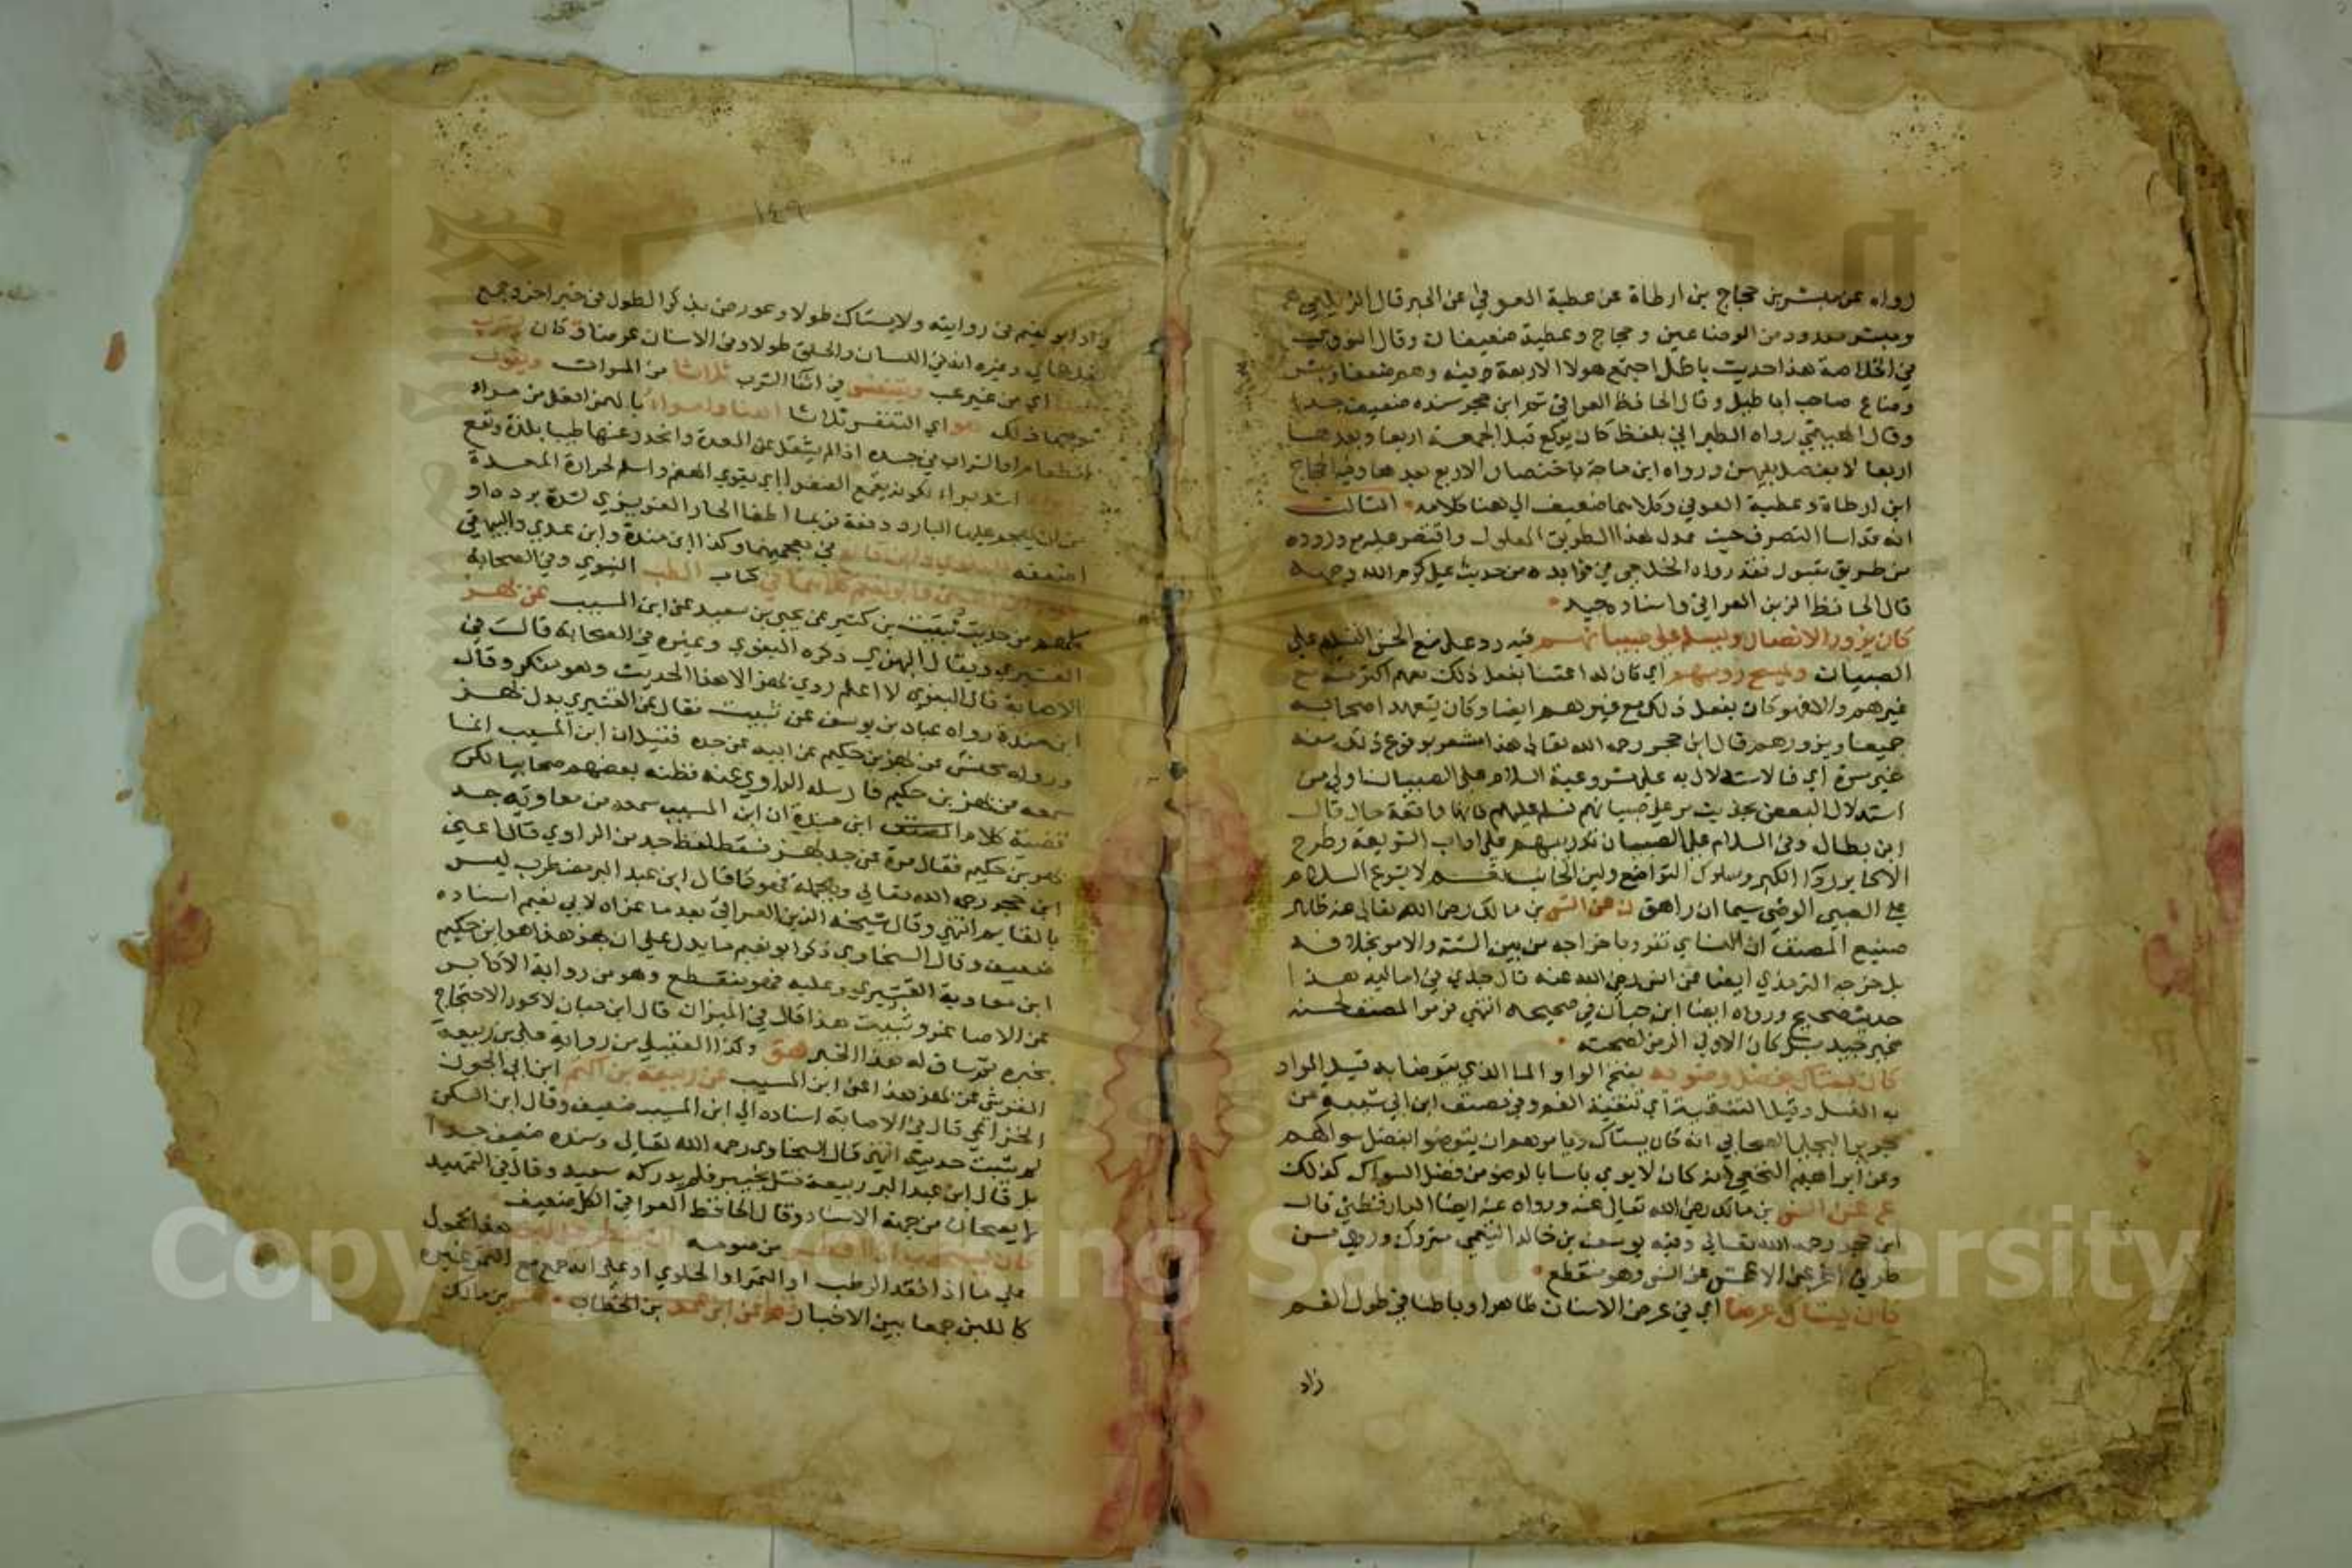 رواه عن مبشر بن حجاج بن ارطاة عن عطية العوفي عن الحبر قال الزيلعي
ومبشر معدود من الوضاعين وحجاج وعطية ضعيفان وقال النووي
في الخلاصة هذا حديث باطل اجتمع هولا الاربعة فيه وهم ضعفا ومبشر
وضاع صاحب اباطيل وقال الحافظ العراقي ثم ابن حجر سنده ضعيف جدا
وقال الهيثمي رواه الطبراني بلفظ كان يركع قبل الجمعة اربعا وبعدها
اربعا لا يفصل بينهن ورواه ابن ماجة باختصار الاربع بعدها وفيه الحجاج
ابن ارطاة وعطية العوفي وكلاهما ضعيف الي هنا كلامه الثالث
انه قد اسا التصرف حيث عدل لهذا الطريق المعلول واقتصر عليه مع وروده
من طريق مقبول فقد رواه الخلعي في فوايده من حديث علي كرم الله وجهه
قال الحافظ الزين العراقي واسناده جيد
كان يزور الانصار ويسلم علي صبيانهم فيه رد علي منع الحسن التسليم علي
الصبيان ويمسح روسهم اي كان له اعتنا بفعل ذلك معهم اكثر منه مع
غيرهم والا فهو كان يفعل ذلك مع غيرهم ايضا وكان يتعهد اصحابه
جميعا ويزورهم قال ابن حجر رحمه الله تعالي هذا مشعر بوقوع ذلك منه
غير مرة اي فالاستدلال به علي مشروعية السلام علي الصبيان اولي من
استدلال البعض بحديث مر علي صبيانهم فسلم عليهم فانها واقعة حال قال
ابن بطال وفي السلام علي الصبيان تدريبهم علي اداب الشريعة وطرح
الاكابر ردا الكبر وسلوك التواضع ولين الجانب نعم لا يشرع السلام
علي الصبي الوضي سيما ان راهق ن عن انس بن مالك رضي الله تعالي عنه ظاهر
صنيع المصنف ان النساي تفرد باخراجه من بين الستة والامر بخلافه
بل خرجه الترمذي ايضا عن انس رضي الله عنه قال جدي في اماليه هذا
حديث صحيح ورواه ايضا ابن حبان في صحيحه انتهي فرمز المصنف لحسنه
غير جيد بل كان الاولي الرمز لصحته
كان يستاك بفضل وضويه بفتح الواو الما الذي يتوضا به قيل المراد
به الغسل وقيل التنقية اي تنقية الفم وفي مصنف ابن ابي شيبة عن
جرير البجلي الصحابي انه كان يستاك ويامرهم ان يتوضوا بفضل سواكهم
وعن ابراهيم النخعي انه كان لا يري باسا بالوضو من فضل السواك كذلك
ع عن انس بن مالك رضي الله تعالي عنه ورواه عنه ايضا الدارقطني قال
ابن حجر رحمه الله تعالي وفيه يوسف بن خالد التيمي متروك وروي من
طريق اخري عن الاعمش عن انس وهو منقطع
كان يستاك عرضا اي في عرض الاسنان ظاهرا وباطنا في طول الفم
زاد
١٤٩
زاد ابو نعيم في روايته ولا يستاك طولا وعورض بذكر الطول في خبر اخر وجمع
وغيره انه في اللسان والحلق طولا وفي الاسنان عرضا وكان يشرب
اي من غير عب ويتنفس في اثنا الشرب ثلاثا من المرات ويقول
ذلك هو اي التنفس ثلاثا اهنا وامرا وابرا بالهمز افعل من مراء
الطعام او الشراب في جسده اذا لم يثقل علي المعدة وانحدر عنها طيبا بلذة ونفع
اشد براء لكونه يقمع الصفرا اي يقوي الهضم واسلم لحرارة المعدة
من ان يهجم عليها البارد دفعة فربما اطفا الحار الغريزي لشدة برده او
اضعفه البغوي وابن قانع في معجميهما وكذا ابن مندة وابن عدي والبيهقي
وابو نعيم كلاهما في كتاب الطب النبوي وفي الصحابة
كلهم من حديث ثبيت بن كثير عن يحيي بن سعيد عن ابن المسيب عن بهز
القشيري ويقال البهزي ذكره البغوي وغيره في الصحابة قالت في
الاصابة قال البغوي لا اعلم روي بهز الا هذا الحديث وهو منكر وقال
ابن مندة رواه عباد بن يوسف عن ثبيت فقال عن القشيري بدل بهز
ورواه مخيس عن بهز بن حكيم عن ابيه عن جده فقيل ان ابن المسيب انما
سمعه من بهز بن حكيم فارسله الراوي عنه فظنه بعضهم صحابيا لكن
قضية كلام المصنف ابن مندة ان ابن المسيب سمعه من معاوية جد
بهز بن حكيم فقال مرة عن جد بهز فسقط لفظ جد من الراوي قال اعني
ابن حجر رحمه الله تعالي وبالجملة فهو كما قال ابن عبد البر مضطرب ليس
بالقايم انتهي وقال شيخه الزين العراقي بعد ما عزاه لابي نعيم اسناده
ضعيف وقال السخاوي ذكر ابو نعيم ما يدل علي ان بهز هذا هو ابن حكيم
ابن معاوية القشيري وعليه فهو منقطع وهو من رواية الاكابر
عن الاصاغر وثبيت هذا قال في الميزان قال ابن حبان لا يجوز الاحتجاج
بخبره ثم ساق له هذا الخبر هق وكذا العقيلي من رواية علي بن ربيعة
القرشي عن بهز هذا عن ابن المسيب عن ربيعة بن اكثم ابن ابي الجون
الخزاعي قال في الاصابة اسناده الي ابن المسيب ضعيف وقال ابن السكن
لم يثبت حديثه انتهي قال السخاوي رحمه الله تعالي وسنده ضعيف جدا
بل قال ابن عبد البر ربيعة قتل بخيبر فلم يدركه سعيد وقال في التمهيد
لا يصحان من جهة الاسناد وقال الحافظ العراقي الكل ضعيف
كان يستحب اذا افطر من صومه هذا محمول
علي ما اذا فقد الرطب او التمر او الحلوي او علي انه جمع مع التمر غيره
كاللبن جمعا بين الاخبار عن ابن عمر بن الخطاب انس بن مالك
Copyright © King Saud University